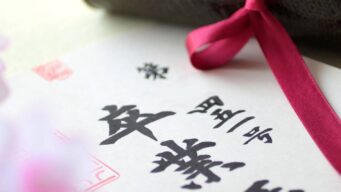 第四五一号
卒業